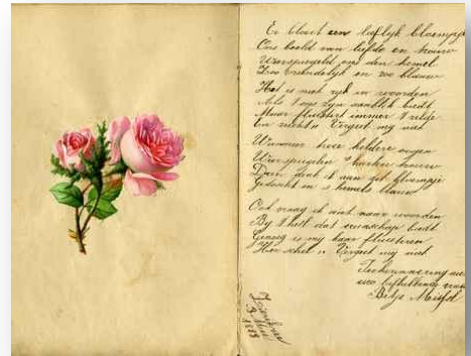 Er bloeit een lieflijk bloempje
Ons beeld van liefde en trouw
Weerspiegelt ons den hemel
Zoo vriendelijk en zoo blauw
Het is niet rijk in woorden
Als 't ons zijn aanblik biedt
Maar fluistert immer 't zelfde
En niet Vergeet mij niet
Wanneer twee heldere oogen
Weerspiegelen harten trouw
Dan denk ik aan dit bloempje
Gedoscht in 's hemels blauw
Ook vraag ik niet naar woorden
By 't lied dat vriendschap biedt
Genoeg is mij haar fluisteren
Hoe schel Vergeet mij niet
Ter herinnering aan
uwe liefhebbende
Betje